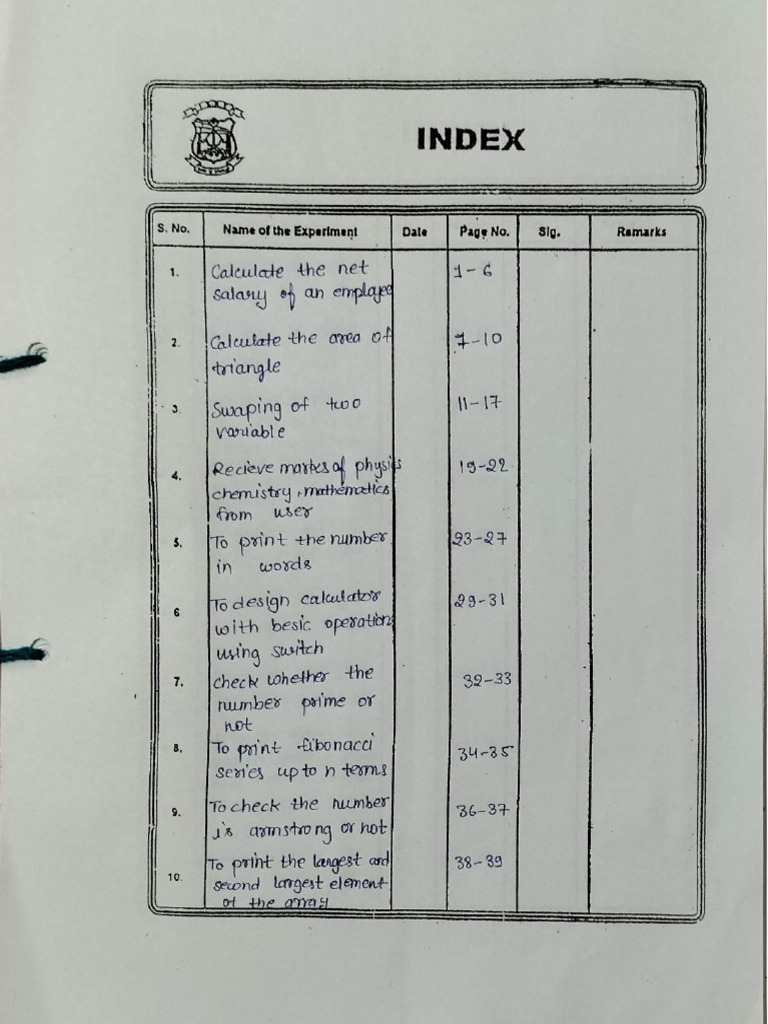 INDEX
S. No. Name of the Experiment Date Page No. Sig. Remarks
1. Calculate the net 1-6
salary of an employee
2. Calculate the area of 7-10
triangle
3. Swaping of two 11-17
variable
4. Recieve marks of physics 19-22
chemistry, mathematics
from user
5. To print the number 23-27
in words
6 To design calculator 29-31
with besic operations
using switch
7. check whether the 32-33
number prime or
not
8. To print fibonacci 34-35
series up to n terms
9. To check the number 36-37
is armstrong or not
10. To print the largest and 38-39
second largest element
of the array